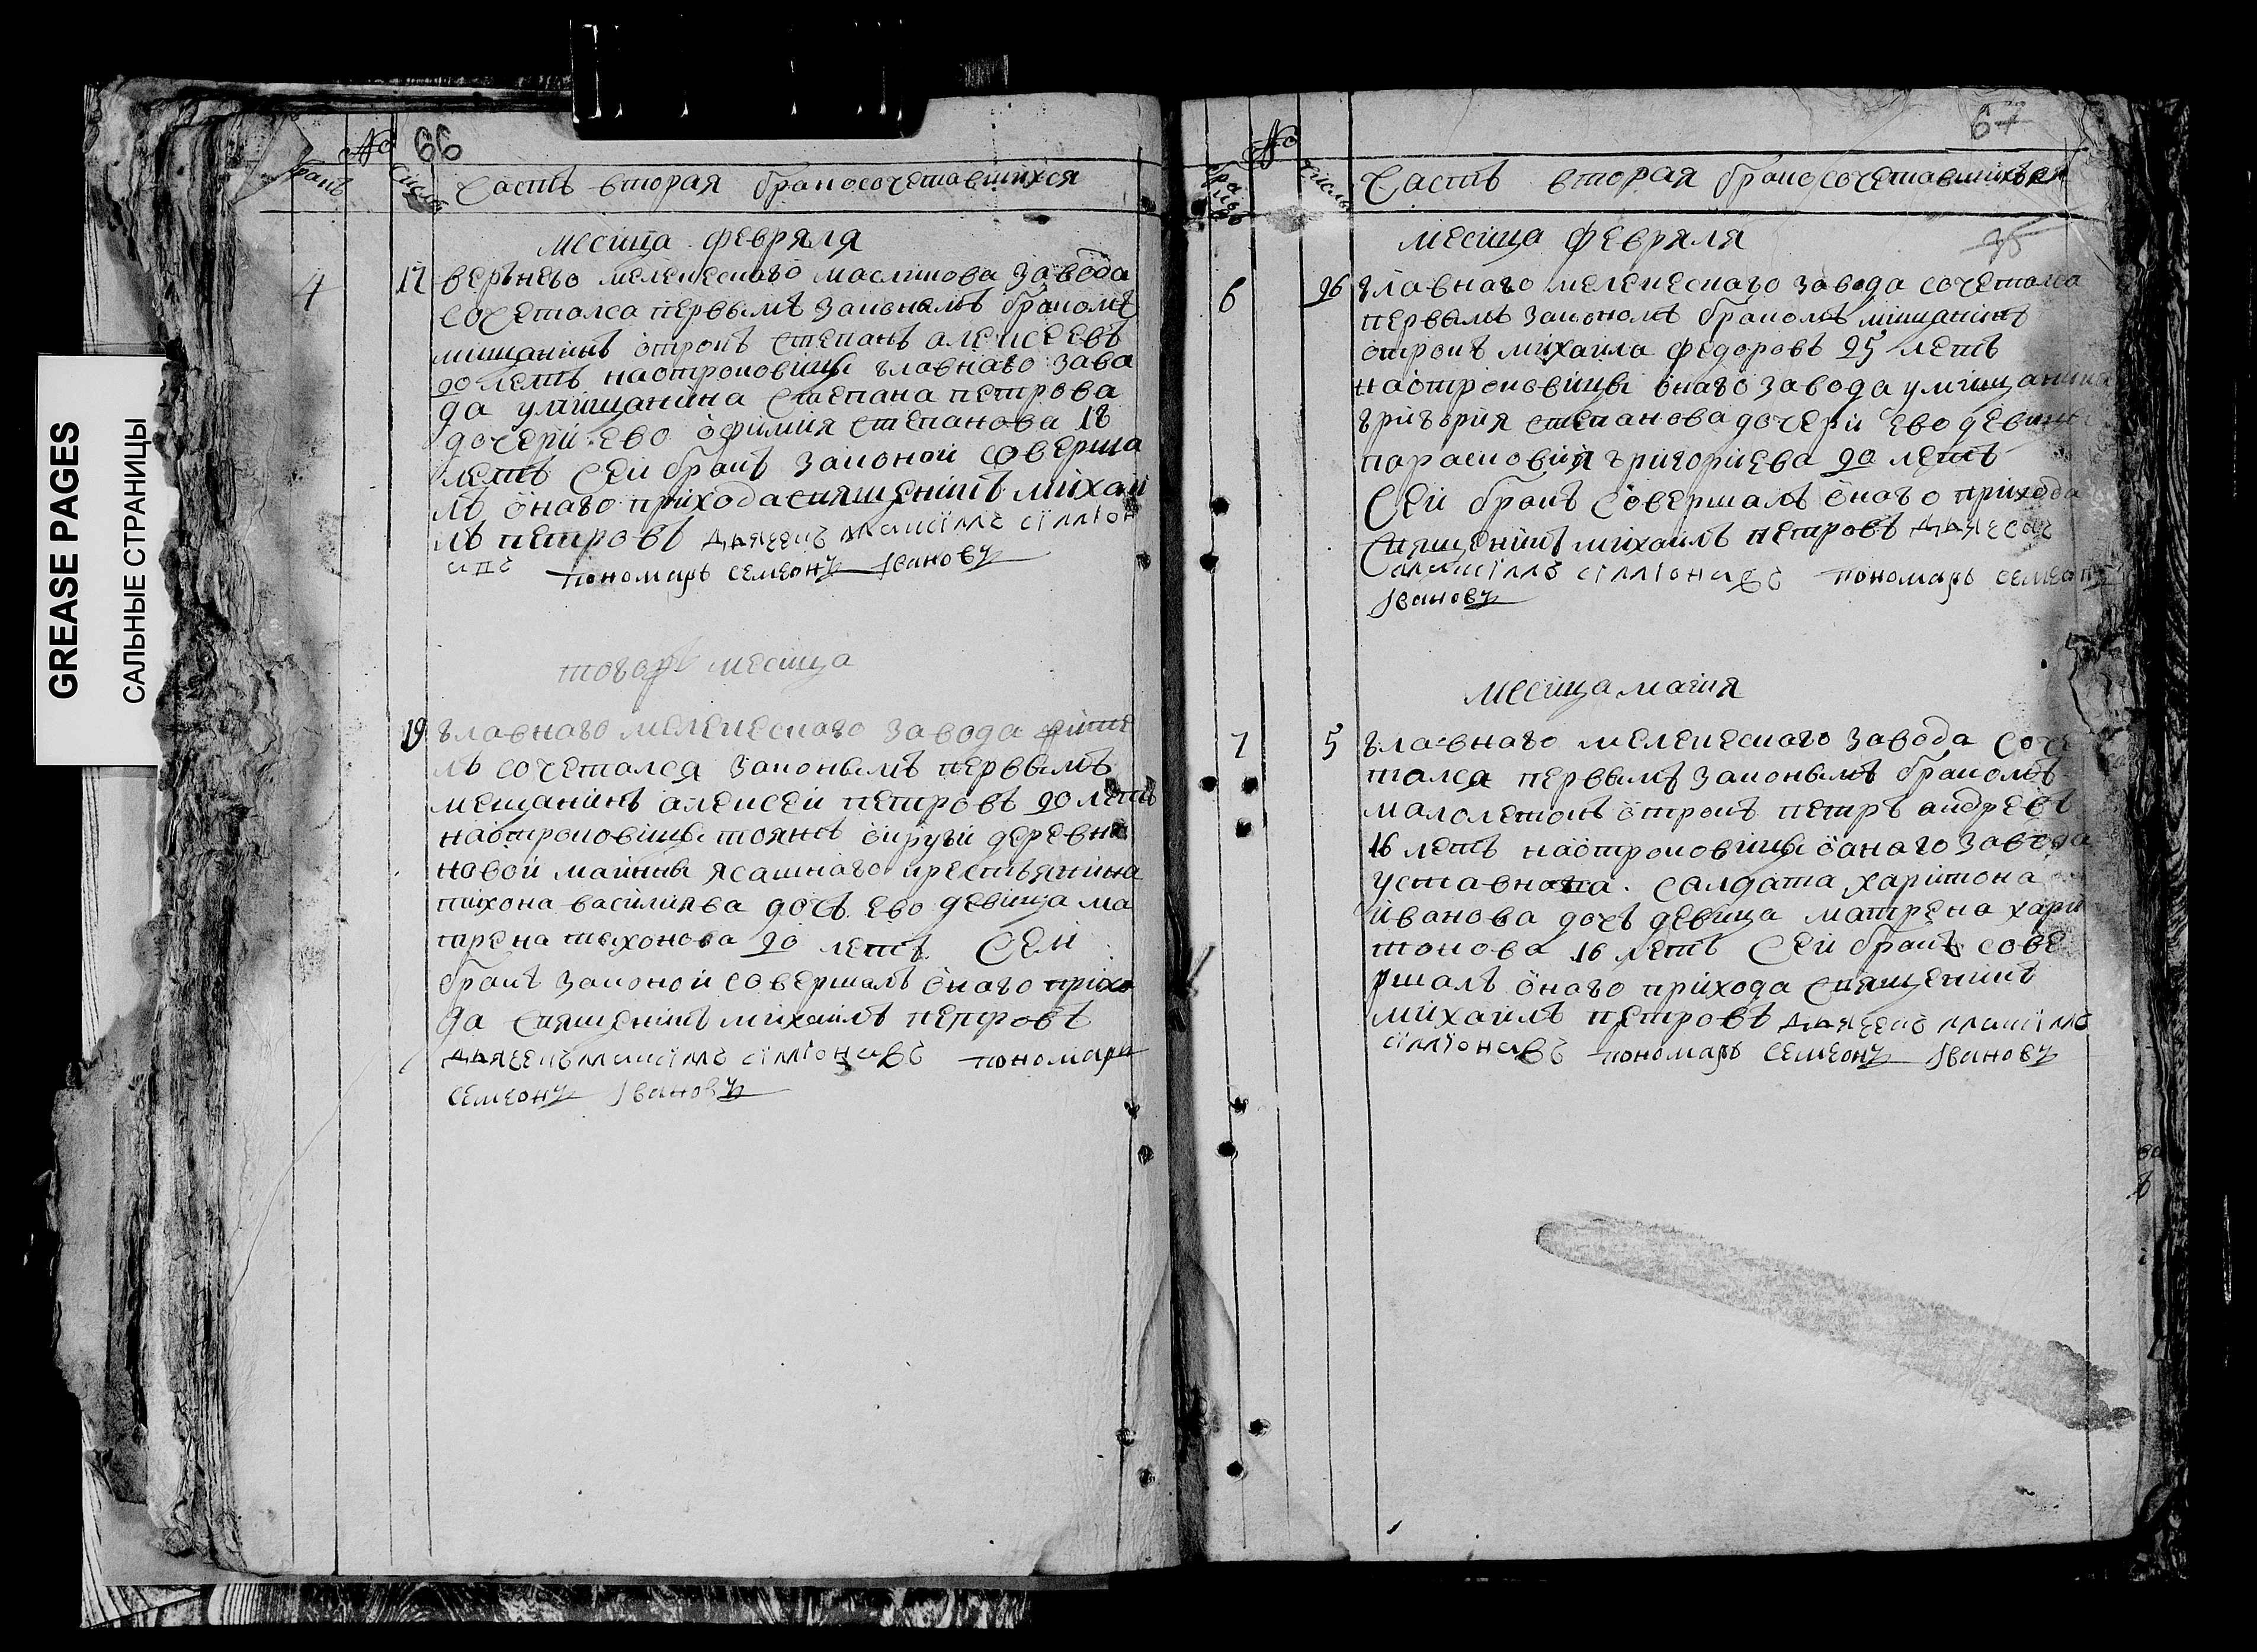 GREASE PAGES
САЛЬНЫЕ СТРАНИЦЫ
№ 66
бракъ число Часть вторая бракосочетавшихся
месица февряля
4 17 верьнего мелекеснаго маслинова завода
сочеталса первымъ законымъ бракомъ
мищанинъ отрокъ степанъ алексеевъ
20 летъ наотроковицы главнаго заво
да умищанина степана петрова
дочери ево офимия степанова 18
летъ Сей бракъ законой соверша
лъ онаго прихода священикъ михаи
лъ петровъ дьячекъ максимъ симіон
пономарь семеонъ Ивановъ
тогоръ месица
19 главнаго мелекеснаго завода
лъ сочеталса законымъ первымъ
мещанинъ алексеи петровъ 20 летъ
наотроковицы тоянъ округи деревни
новой маины ясашнаго крестьянина
тихона василиява дочь ево девица ма
трена тихонова 20 летъ Сей
бракъ законой совершалъ онаго прихо
да священикъ михаилъ петровъ
дьячекъ максимъ симіонавъ пономарь
семеонъ Ивановъ
№ 67
число Часть вторая бракосочетавшихся
месица февряля
6 26 главнаго мелекеснаго завода сочеталса
первымъ закономъ бракомъ мищанинъ
отрокъ михаила федоровъ 25 летъ
наотроковицы онаго завода умищанина
григория степанова дочери ево девицы
парасковия григориева 20 летъ
Сей бракъ совершалъ онаго прихода
Священикъ михаилъ петровъ дьячекъ
максимъ симіонавъ пономарь семеонъ
Ивановъ
месица маия
7 5 главнаго мелекеснаго завода соче
талса первымъ законымъ бракомъ
малолетокъ отрокъ петръ андревъ
16 летъ наотроковицы оанаго завода
уставнова салдата харитона
иванова дочь девица матрена хари
тонова 16 летъ Сей бракъ сове
ршалъ онаго прихода священикъ
михаилъ петровъ дьячекъ максимъ
симіонавъ пономарь семеонъ Ивановъ